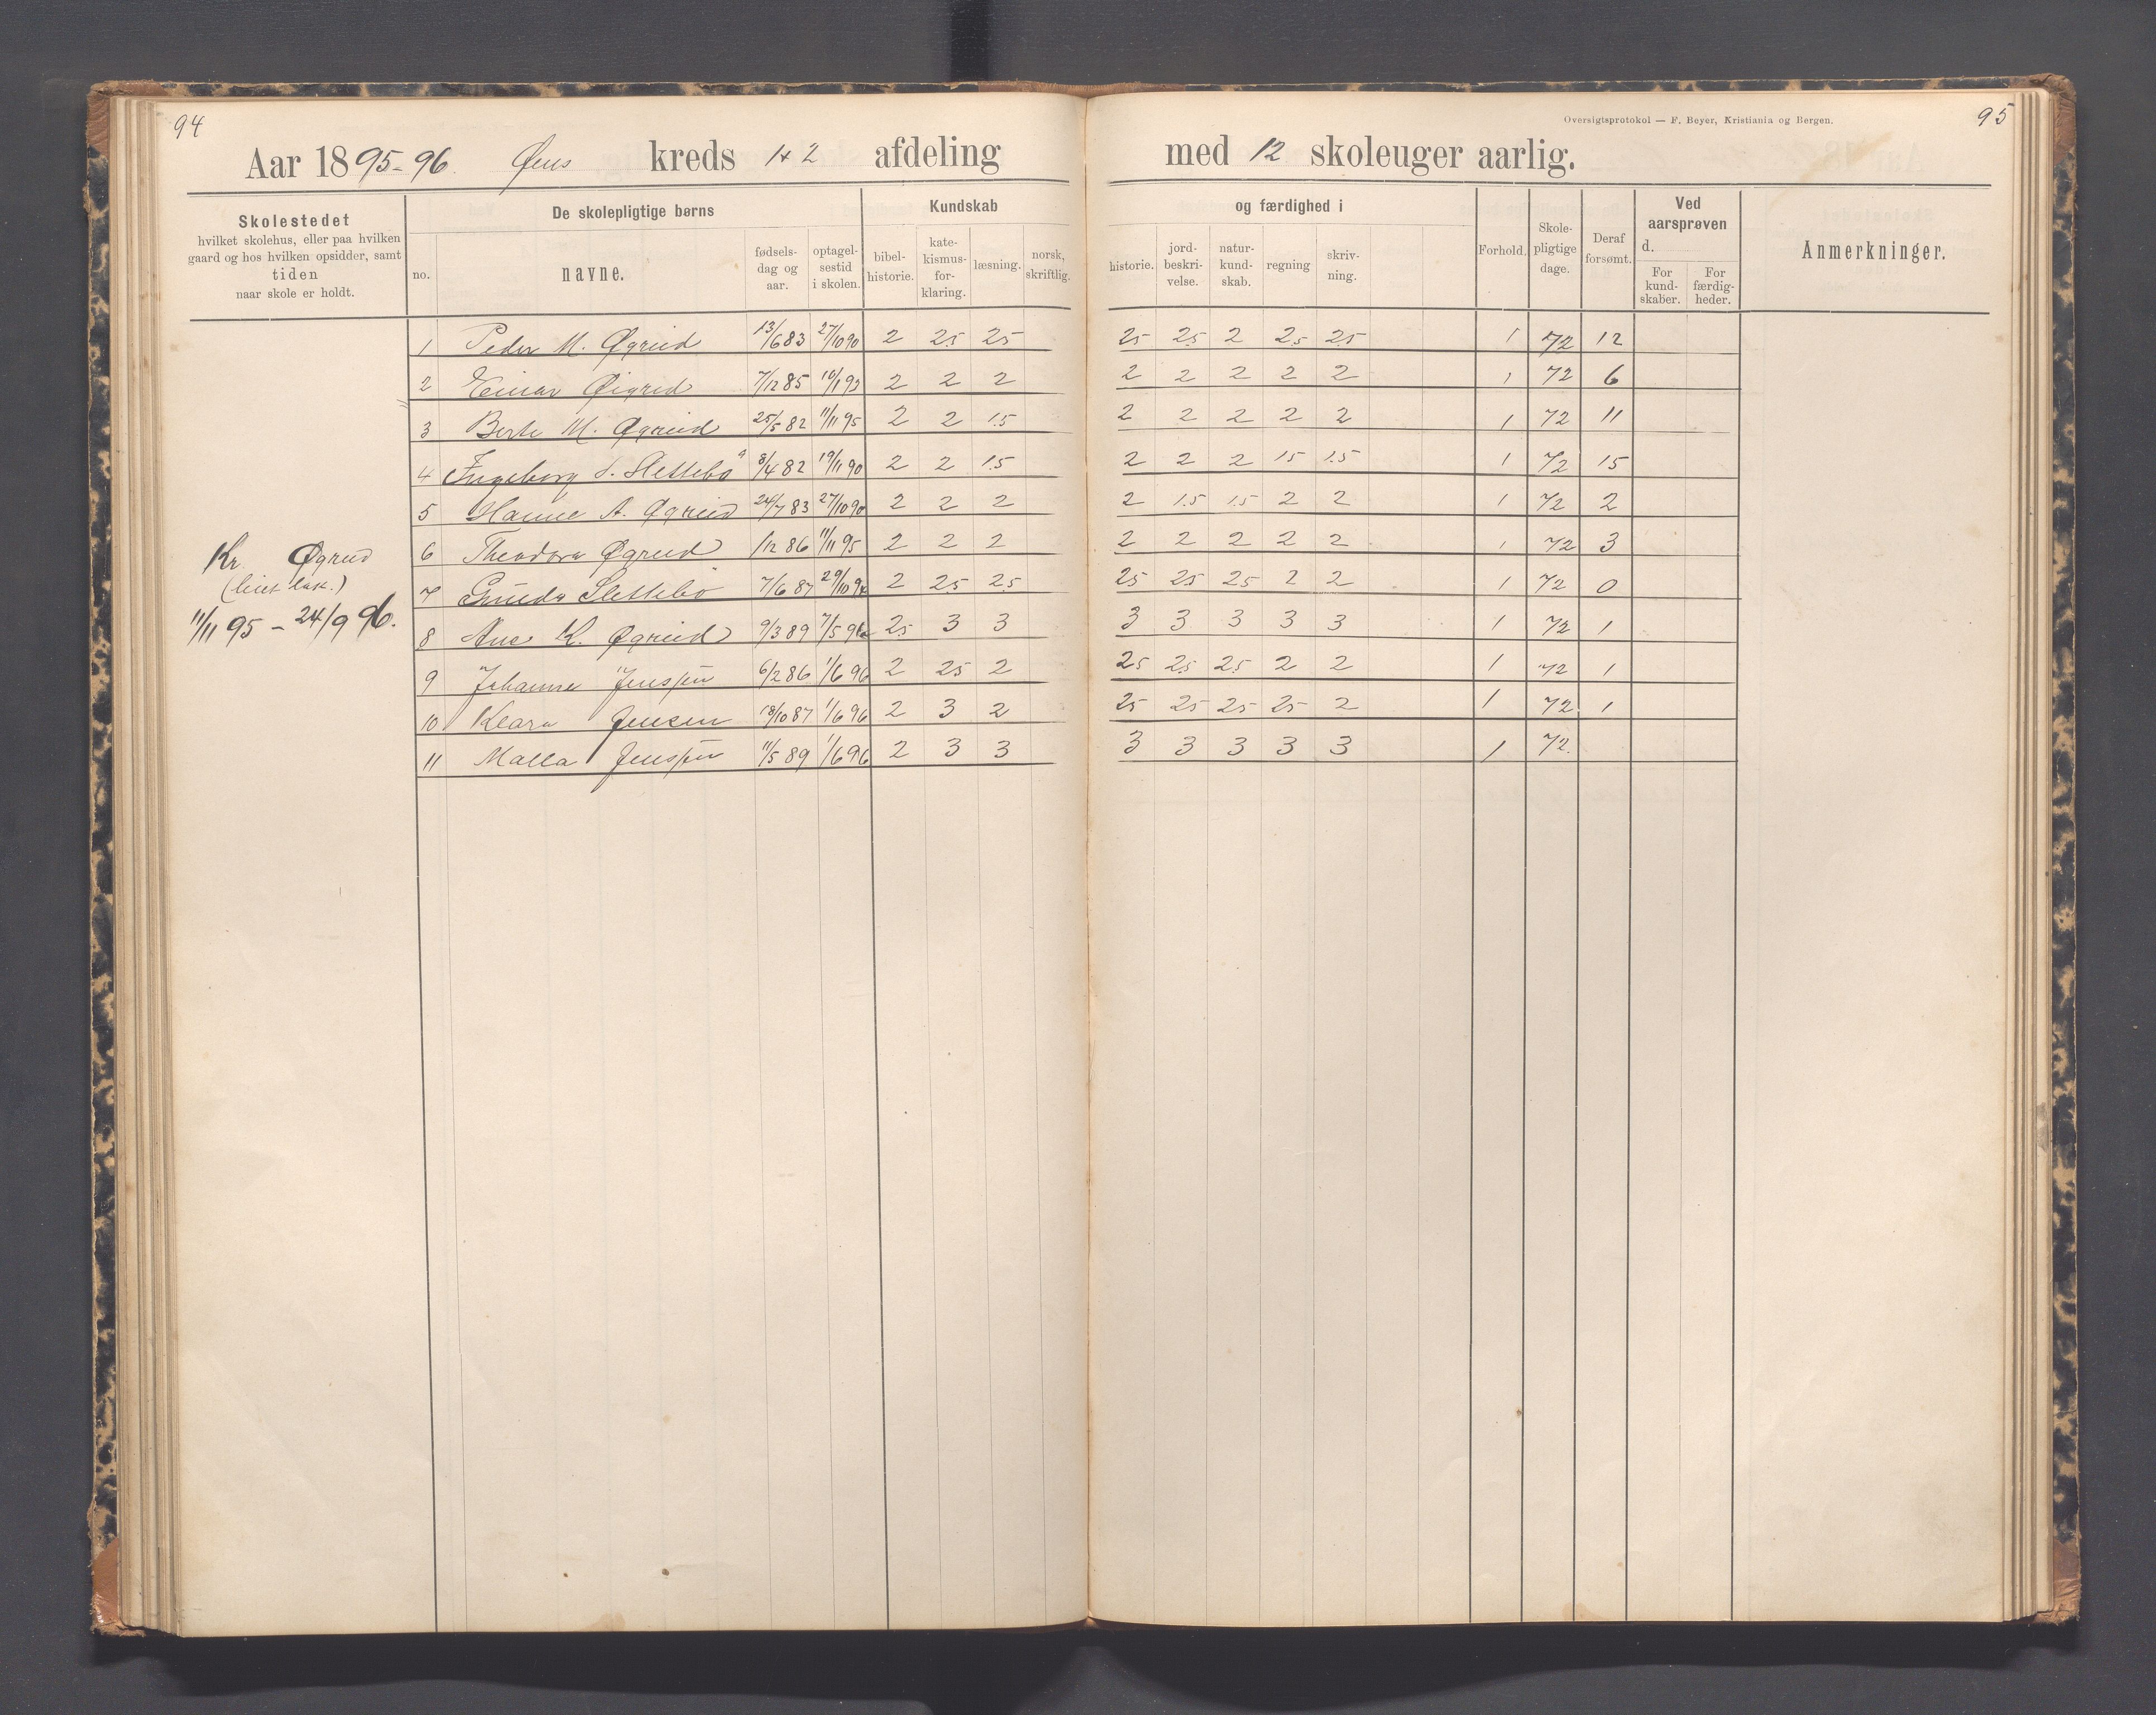 94
Aar 1895-96. Øens kreds 1 + 2 afdeling
Skolestedet
hvilket skolehus, eller paa hvilken
gaard og hos hvilken opsidder, samt
tiden
naar skole er holdt.
De skolepligtige børns
no. navne. fødsels-dag og aar. optagel-sestid i skolen.
Kundskab
bibel-historie. kate-kismus-for-klaring. læsning. norsk, skriftlig.
1 Peder M. Øgreid 13/6 83 27/10 90 2 2.5 2.5
2 Einar Øigreid 7/12 85 10/1 93 2 2 2
3 Berte M. Øgreid 25/5 82 11/11 95 2 2 1.5
4 Ingeborg S. Slettebø 8/4 82 19/11 90 2 2 1.5
5 Hanne A. Øgreid 24/7 83 27/10 90 2 2 2
6 Theodora Øgreid /12 86 11/11 95 2 2 2
7 Slettebø 7/6 87 29/10 94 2 2.5 2.5
8 Ane K. Øgreid 9/3 89 7/5 96 2.5 3 3
9 Johanne Jenssen 6/2 86 1/6 96 2 2.5 2
10 Klara Jensen 18/10 87 1/6 96 2 3 2
11 Malla Jenssen 11/5 89 1/6 96 2 3 3
Kr. Øgreid
(leiet lok.)
11/11 95 - 24/9 96.
95
Oversigtsprotokol — F. Beyer, Kristiania og Bergen.
med 12 skoleuger aarlig.
og færdighed i
historie. jord-beskri-velse. natur-kund-skab. regning skriv-ning. Forhold. Skole-pligtige dage. Deraf forsømt.
Ved aarsprøven
d.
For kund-skaber. For færdig-heder.
Anmerkninger.
2.5 2.5 2 2.5 2.5 1 72 12
2 2 2 2 2 1 72 6
2 2 2 2 2 1 72 11
2 2 2 1.5 1.5 1 72 15
2 1.5 1.5 2 2 1 72 2
2 2 2 2 2 1 72 3
2.5 2.5 2.5 2 2 1 72 0
3 3 3 3 3 1 72 1
2.5 2.5 2.5 2 2 1 72 1
2.5 2.5 2.5 2.5 2 1 72 1
3 3 3 3 3 1 72.